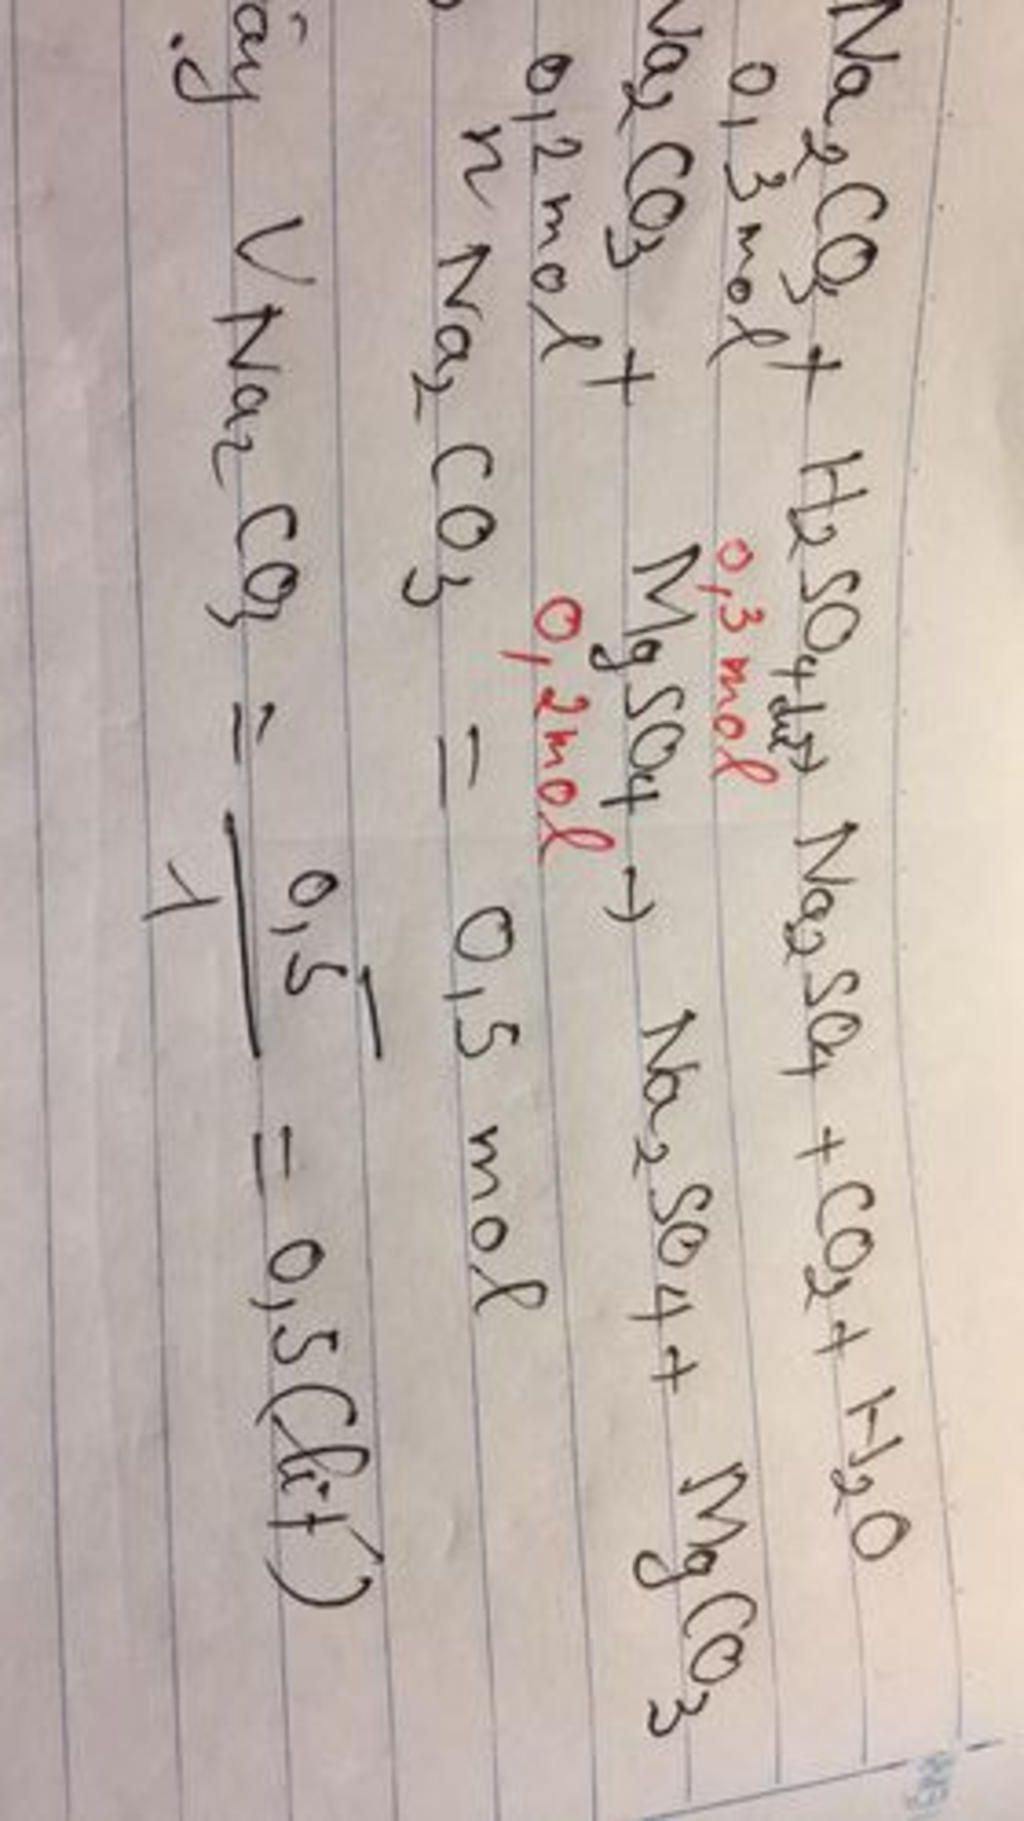 Na2CO3 + H2SO4 dư → Na2SO4 + CO2 + H2O
0,3mol 0,3mol
Na2CO3 + MgSO4 → Na2SO4 + MgCO3
0,2mol 0,2mol
n Na2CO3 = 0,5 mol
ậy V Na2CO3 = 0,5 / 1 = 0,5 (lít)